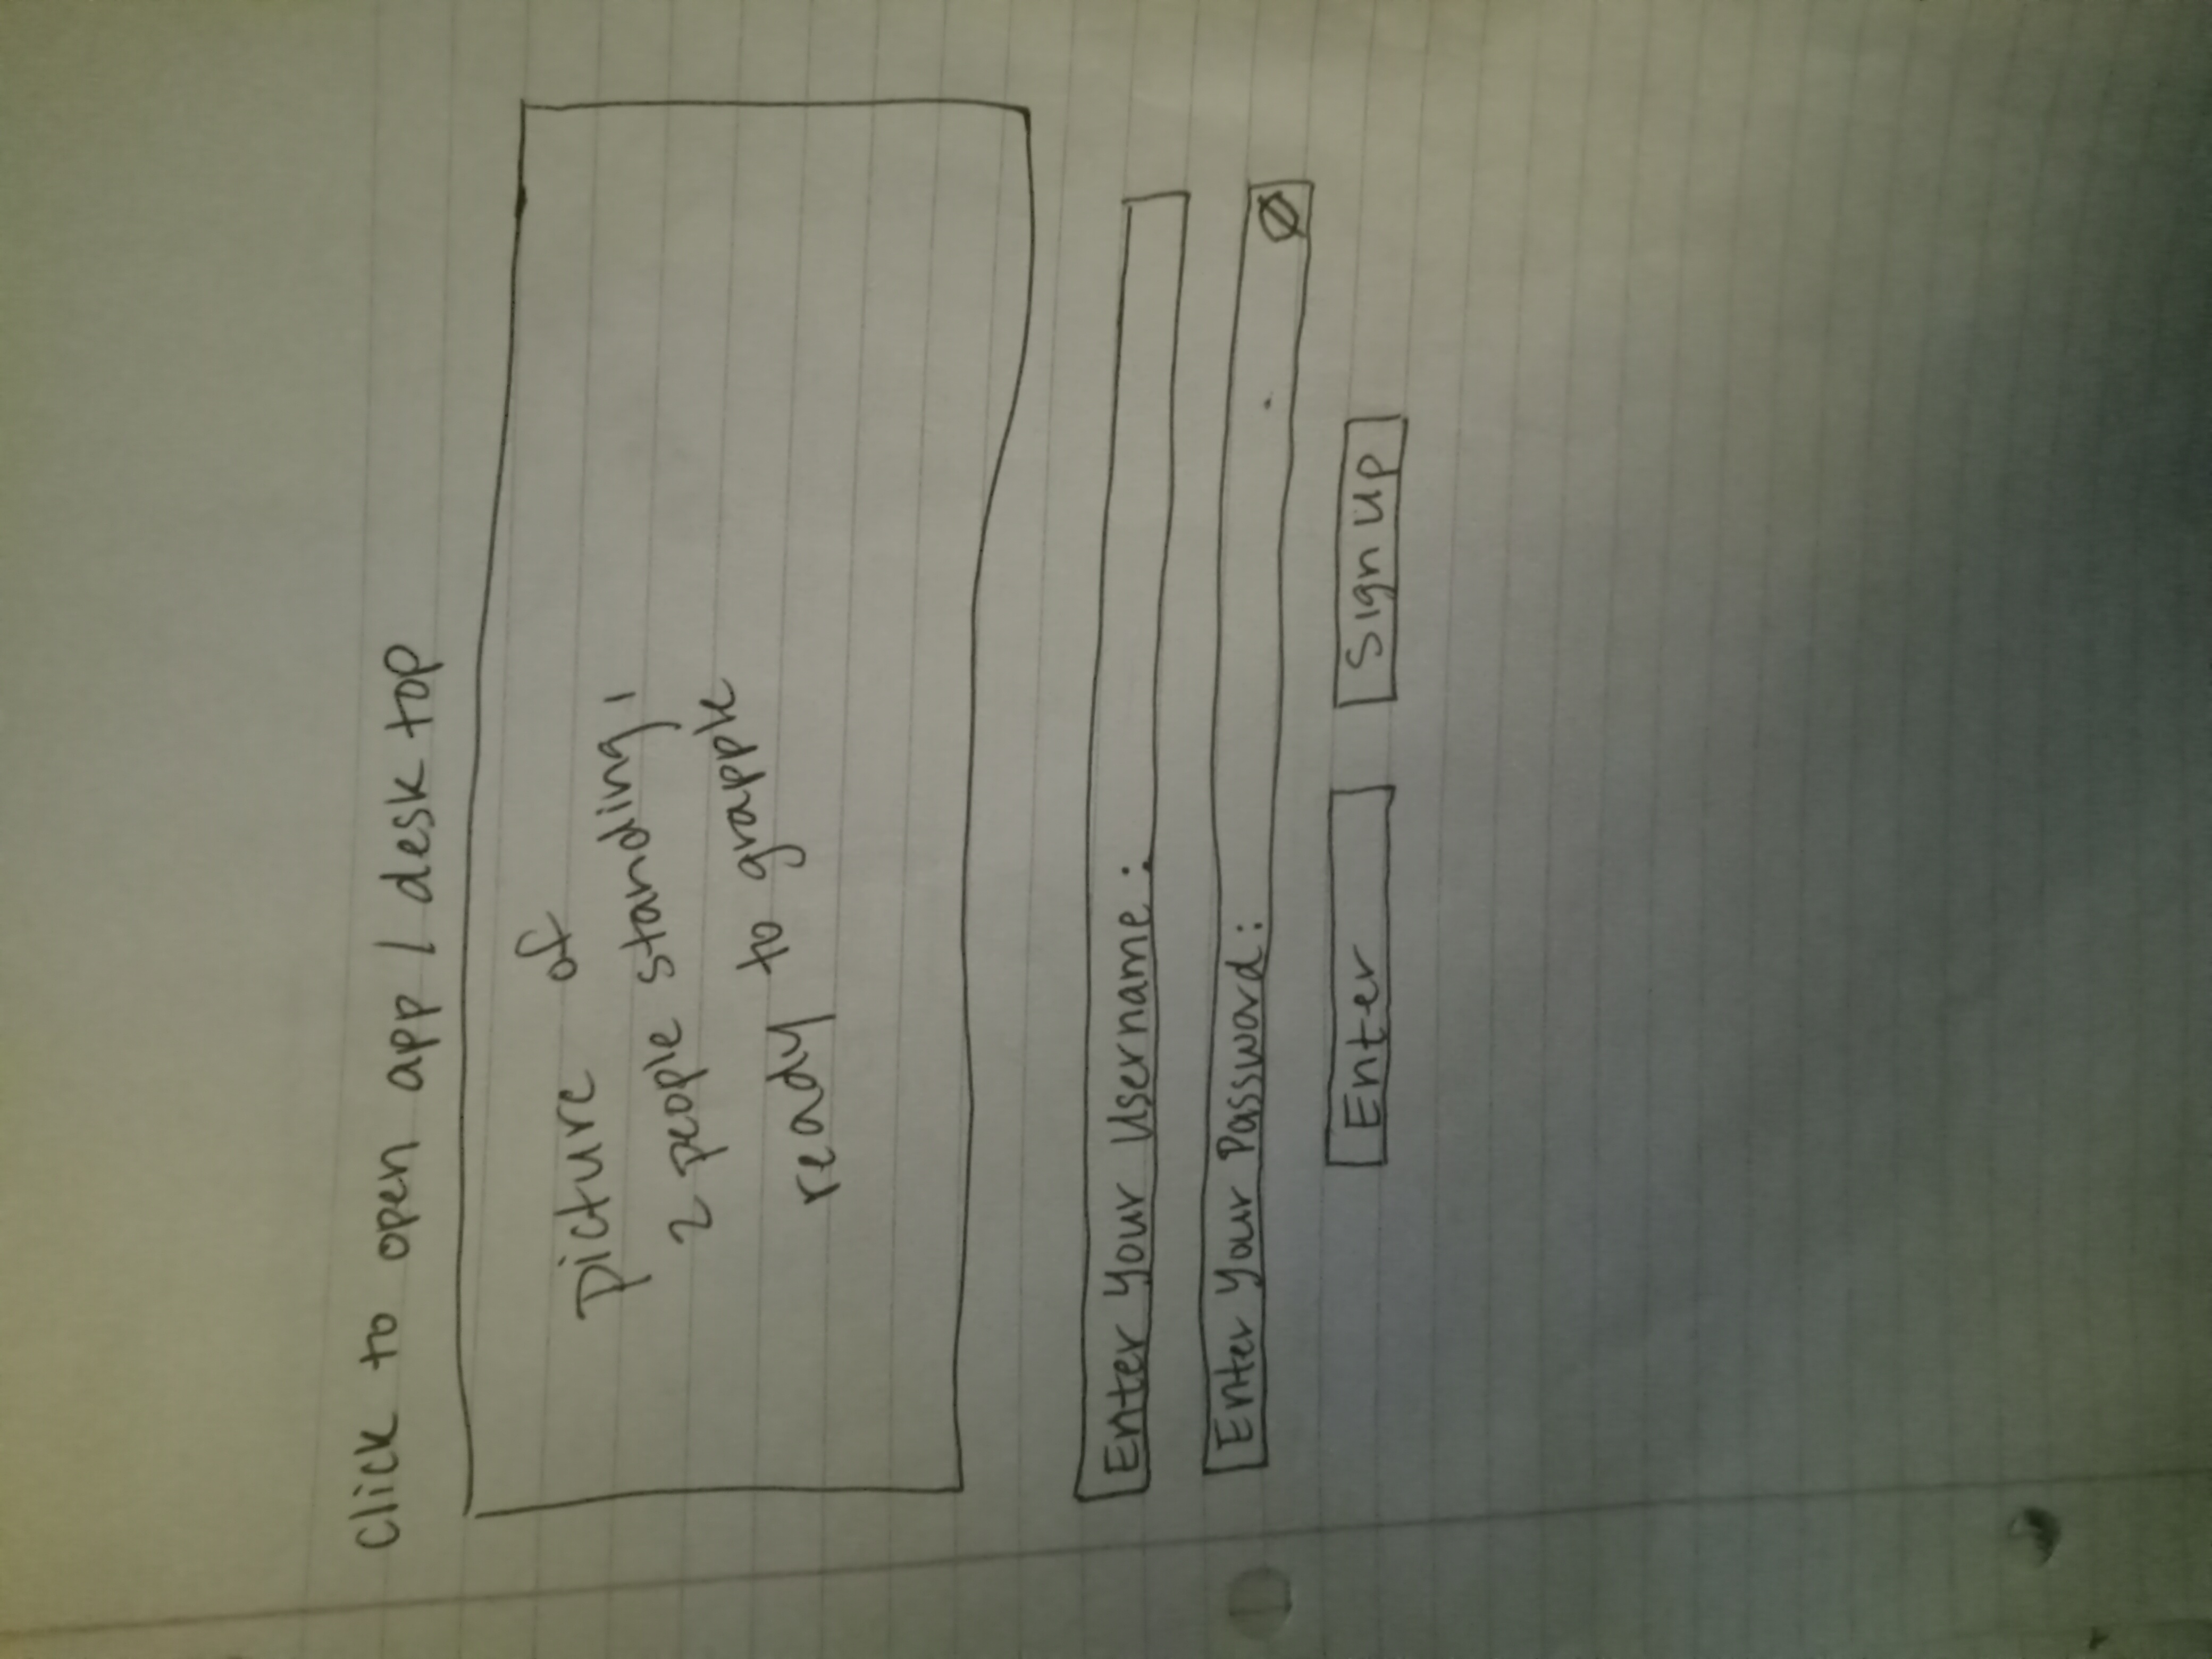 Click to open app / desktop
picture of
2 people standing,
ready to grapple
Enter Your Username :
Enter Your Password :
Enter
Sign up